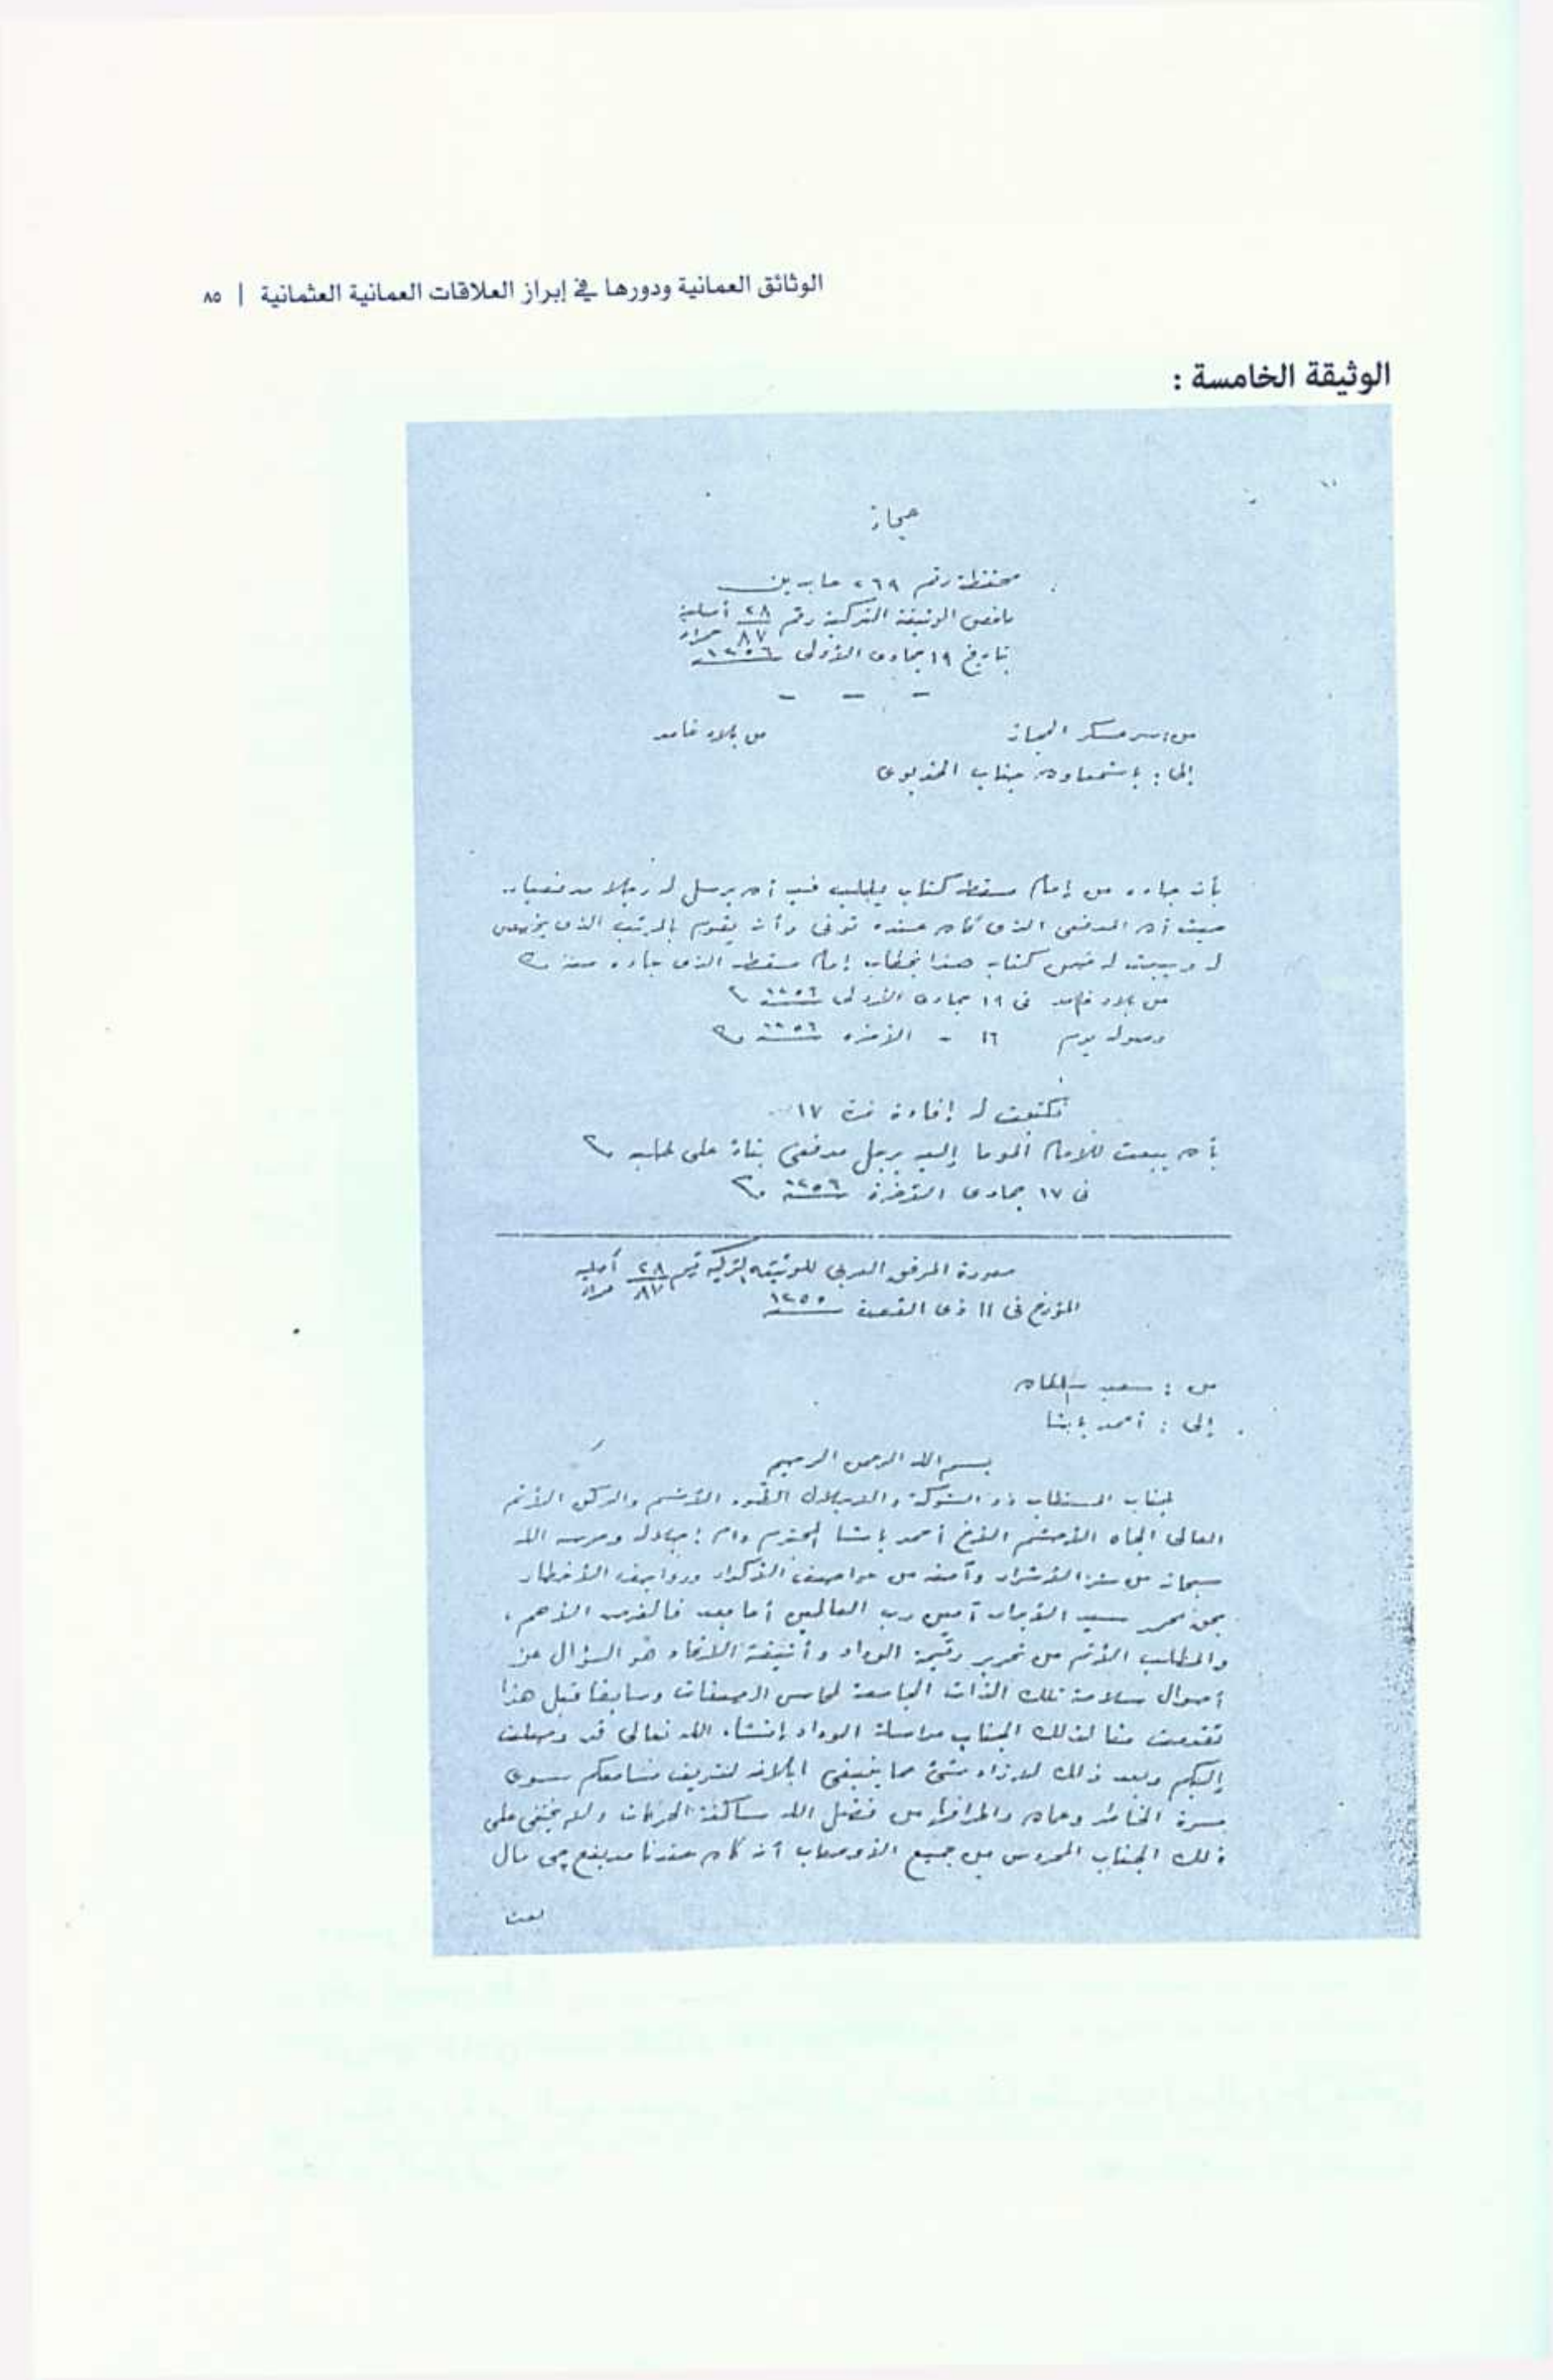 الوثائق العمانية ودورها في إبراز العلاقات العمانية العثمانية | ٨٥
الوثيقة الخامسة :
حجاز
محفظة رقم ٢٦٩ عابدين
ملخص الوثيقة التركية رقم ٢٨ أصلية
٨٧ حمراء
بتاريخ ١٩ جمادى الأولى سنة ١٢٥٦
من: سر عسكر الحجاز من بلاد غامد
إلى: باشمعاون جناب الخديوى
بأنه جاءه من إمام مسقط كتاب يطلب فيه أن يرسل له رجلا مدفعيا..
حيث أن المدفعى الذى كان عنده توفى وأنه يقوم بالمرتب الذى يخصص
له ويبعث له ضمن كتابه هذا خطاب إمام مسقط الذى جاءه منه
من بلاد غامد فى ١٩ جمادى الأولى سنة ١٢٥٦
وصوله يوم ١٦ - الآخره سنة ١٢٥٦
فكتبت له إفادة نمرة ١٧
بأن يبعث للامام الموما إليه برجل مدفعى بناءً على طلبه
فى ١٧ جمادى الآخرة سنة ١٢٥٦
صورة المرفق العربى للوثيقة التركية رقم ٢٨ أصلية
٨٧ حمراء
المؤرخ فى ١١ ذى القعدة سنة ١٢٥٥
من : سعيد سلطان
إلى : أحمد باشا
بسم الله الرحمن الرحيم
لجناب المستطاب ذو الشوكة والاجلال الأفخم والركن الأتم
العالى الجاه الأحشم الأخ أحمد باشا المحترم دام إجلاله وحرسه الله
سبحانه من شر الأشرار وآمنه من عواصف الأكدار ورواجف الأخطار
بحق محمد سيد الأبرار آمين رب العالمين أما بعد فالغرض الأهم،
والمطلب الأتم من تحرير رقيمة الوداد وأنيقة الاتحاد هو السؤال عن
أحوال سلامة تلك الذات الجامعة لمحاسن الصفات وسابقا قبل هذا
تقدمت منا لذلك الجناب مراسلة الوداد إنشاء الله تعالى قد وصلت
إليكم وبعد ذلك لانراه شئ مما ينبغى ابلاغه لشريف مسامعكم سوى
مسرة الخاطر وعمان والمرافق من فضل الله ساكنة الحركات ولا يخفى على
ذلك الجناب المحروس من جميع الأوصاب أنه كان عندنا